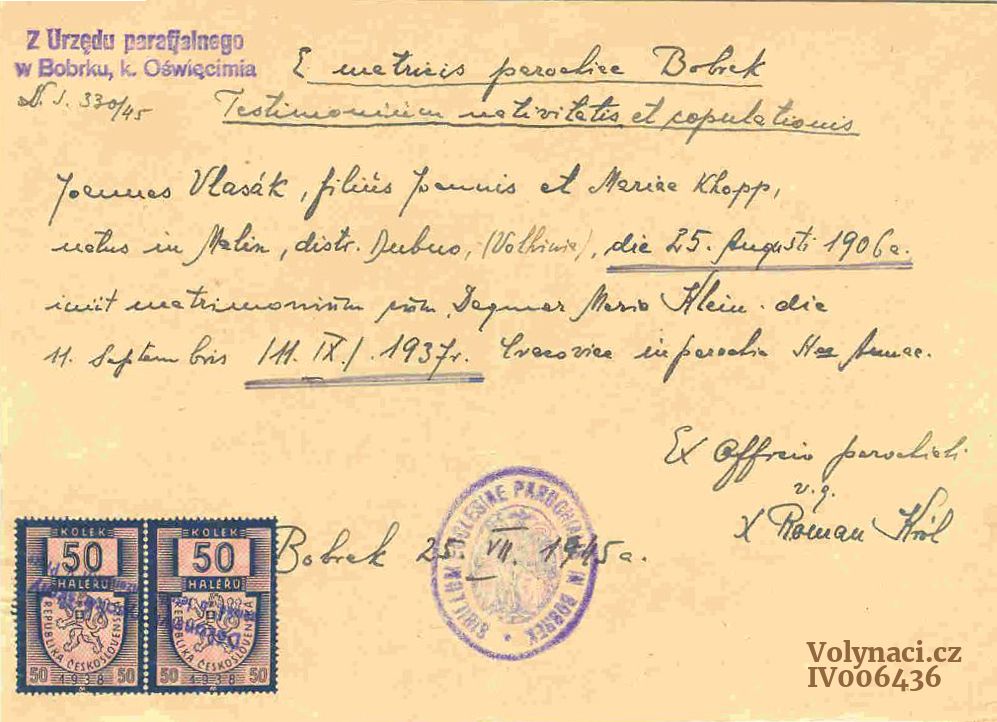 Z Urzędu parafjalnego
w Bobrku, k. Oświęcimia
N. J. 330/45
E matricis parochiae Bobrek
Testimonium nativitatis et copulationis
Joannes Vlasák, filius Joannis et Mariae Khopp,
natus in Malin, distr. Dubno, (Volhinia), die 25. Augusti 1906 a.
iniit matrimonium cum Dagmar Maria Klein die
11. Septembris /11. IX./ 1937 r. Cracoviae in parochia Annae.
Ex Officio parochiali
v. g.
X Roman Król
Bobrek 25. VII. 1945 a.
SIGILLUM ECCLESIAE PAROCHIALIS IN BOBREK
KOLEK
50
HALÉŘŮ
REPUBLIKA ČESKOSLOVENSKÁ
50 1938 50
KOLEK
50
HALÉŘŮ
REPUBLIKA ČESKOSLOVENSKÁ
50 1938 50
Volynaci.cz
IV006436